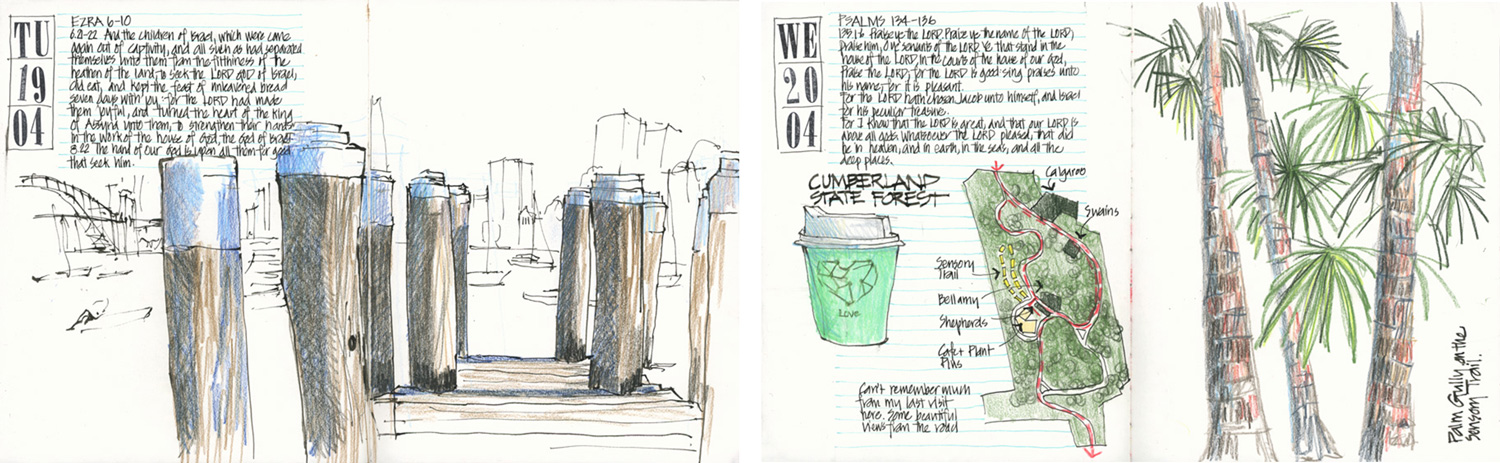 TU
19
04
EZRA 6-10
6.21-22 And the children of Israel, which were come
again out of captivity, and all such as had separated
themselves unto them from the filthiness of the
heathen of the land, to seek the LORD GOD of Israel,
did eat, and kept the feast of unleavened bread
seven days with joy: for the LORD had made
them joyful, and turned the heart of the king
of Assyria unto them, to strengthen their hands
in the work of the house of God, the God of Israel
8.22 The hand of our God is upon all them for good
that seek him.
WE
20
04
PSALMS 134-136
135.1-6 Praise ye the LORD. Praise ye the name of the LORD,
praise him, O ye servants of the LORD. Ye that stand in the
house of the LORD, in the courts of the house of our God,
Praise the LORD; for the LORD is good: sing praises unto
his name; for it is pleasant.
For the LORD hath chosen Jacob unto himself, and Israel
for his peculiar treasure.
For I know that the LORD is great, and that our LORD is
above all gods. Whatsoever the LORD pleased, that did
he in heaven, and in earth, in the seas, and all the
deep places.
CUMBERLAND
STATE FOREST
Love
Calgaroo
Swains
Sensory
Trail
Bellamy
Shepherds
Cafe + Plant
Plus
Can't remember much
from my last visit
here. Some beautiful
views from the road
Palm Gully on the
Sensory Trail.